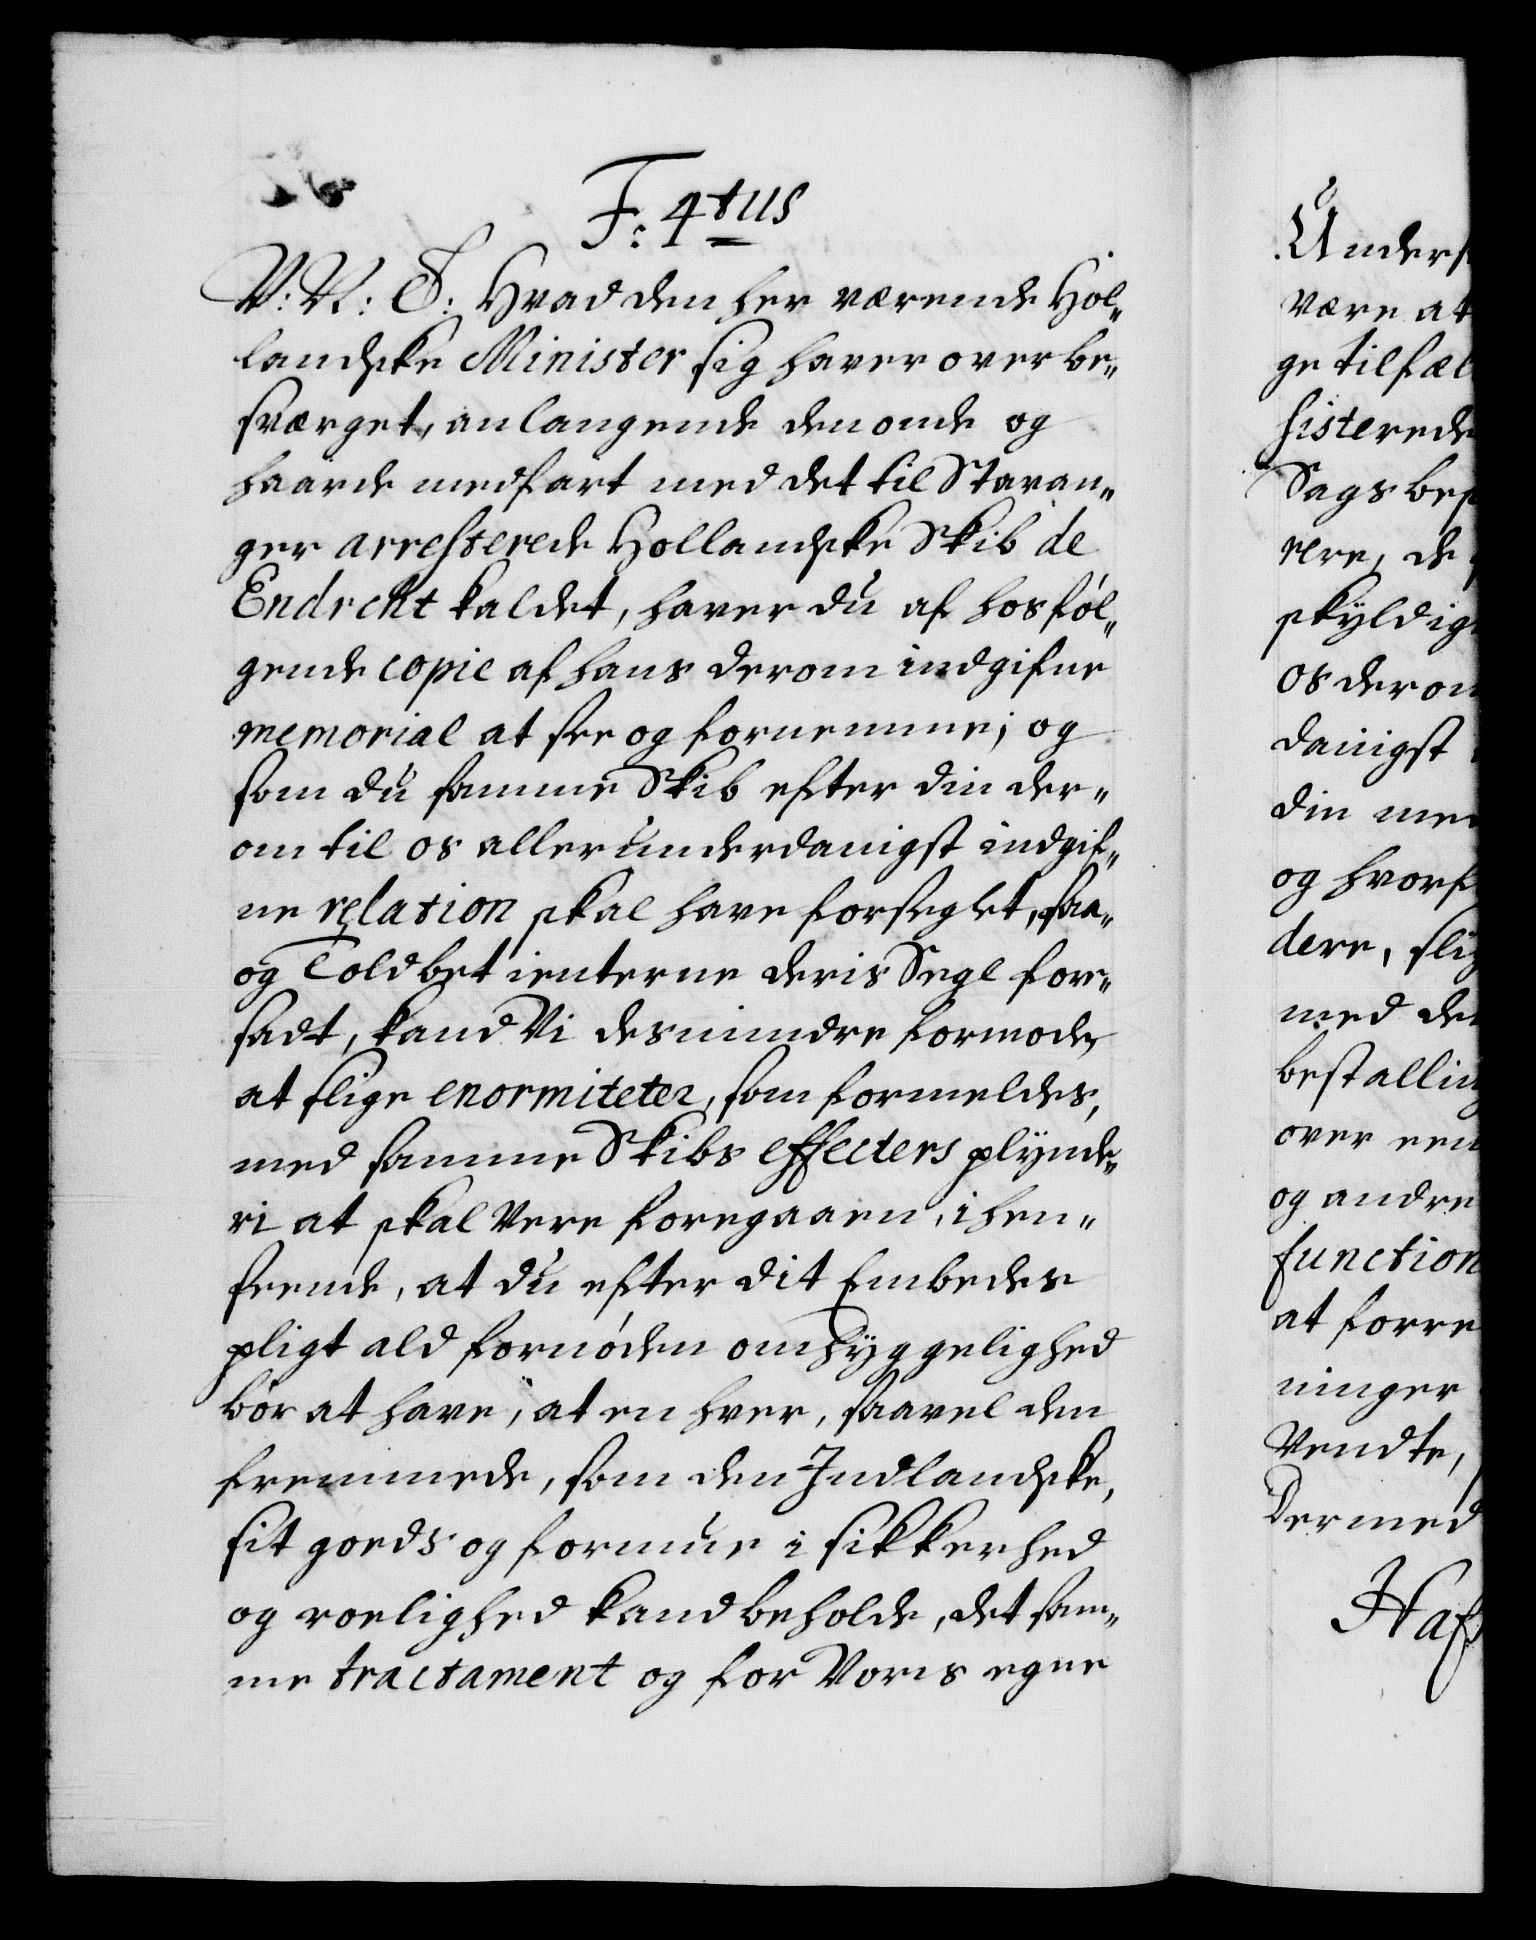 F: 4tus
V: N: T: Hvad den her værende Hol„
landske Minister sig haver over be„
sværget, anlangende den onde og
haarde medfart med det til Stavan„
ger arresterede Hollandske Skib de
Endrcht kaldet, haver du af hosføl„
gende copie af hans derom indgifne
memorial at see og fornemme; og
som du samme Skib efter din der„
om til os allerunderdanigst indgif„
ne relation skal have forseglet, saa„
og Toldbetienterne deris Segl for„
sadt, kand Vi desmindre formode,
at slige enormiteter, som formeldes,
med samme Skibs effecters plynde„
ri at skal Vere foregaaen, i hen„
seende, at du efter dit Embedes
pligt ald fornøden omhyggelighed
bør at have, at en hver, saavel den
fremmede, som den Indlandske,
sit goeds og formue i sikkerhed
og roelighed kand beholde, det sam„
me tractament og for Voris egne
Unders
være at
ge tilfæl
sisterede
Sags bes
rere, de
skyldig
os derom
danigst
din me
og hvorf
dere, slig
med de
bestalling
over een
og andre
function
at forre
ninger
Vendte,
Dermed
Haf